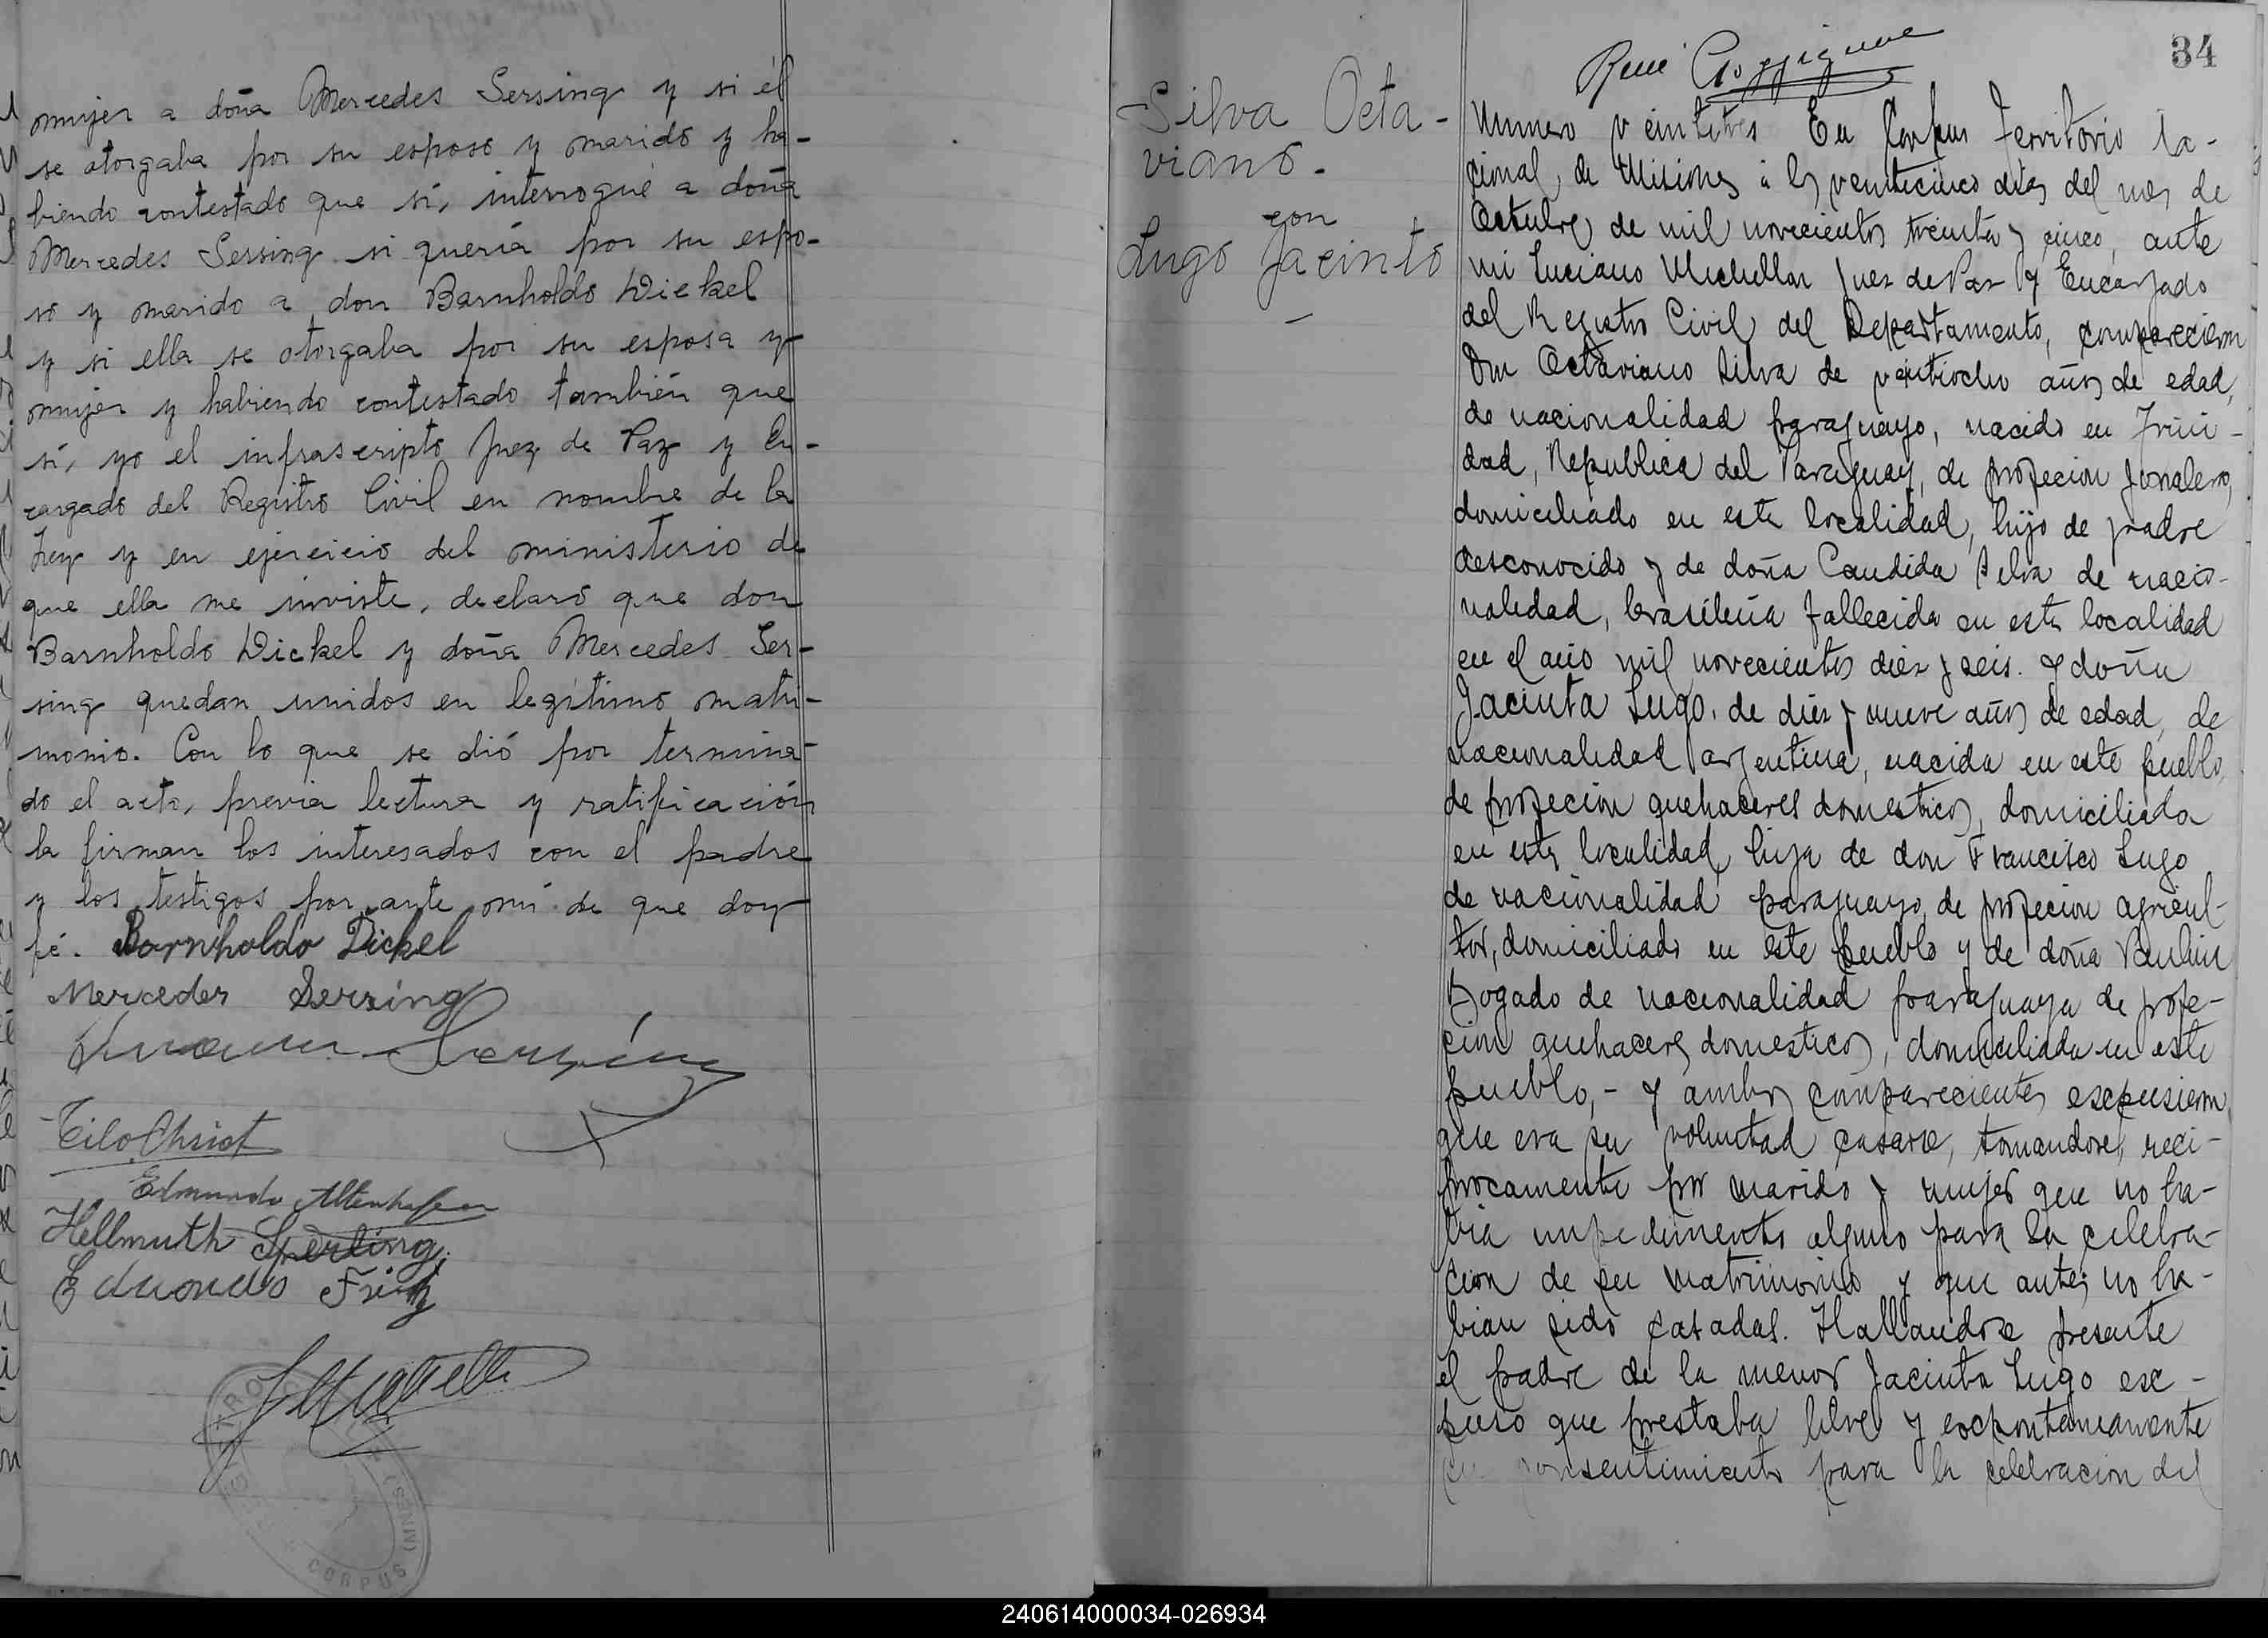 mujer a doña Mercedes Sersing y si él
se otorgaba por su esposo y marido y ha-
biendo contestado que sí, interrogué a doña
Mercedes Sersing si quería por su espo-
so y marido a don Barnholdo Dickel
y si ella se otorgaba por su esposa y
mujer y habiendo contestado también que
sí, yo el infrascripto Juez de Paz y En-
cargado del Registro Civil en nombre de la
Ley y en ejercicio del ministerio de
que ella me inviste, declaro que don
Barnholdo Dickel y doña Mercedes Ser-
sing quedan unidos en legítimo matri-
monio. Con lo que se dió por termina-
do el acto, previa lectura y ratificación
la firman los interesados con el padre
y los testigos por ante mí de que doy
fé. Barnholdo Dickel
Mercedes Sersing
Tilo Christ
Edmundo Altenhofen
Hellmuth Sperling
Edmundo Fritz
CORPUS
34
Silva Octa-
viano.
con
Lugo Jacinto
-
Numero veintitres En Corpus Territorio Na-
cional de Misiones a los veinticinco dias del mes de
Octubre de mil novecientos treinta y cinco, ante
mi Luciano Michellon Juez de Paz y Encargado
del Registro Civil del Departamento, comparecieron
Don Octaviano Silva de veintiocho años de edad,
de nacionalidad paraguayo, nacido en Trini-
dad, Republica del Paraguay, de profecion jornalero,
domiciliado en esta localidad, hijo de padre
desconocido y de doña Candida Silva de nacio-
nalidad, brasileña fallecida en esta localidad
en el año mil novecientos diez y seis. y doña
Jacinta Lugo, de diez y nueve años de edad, de
nacionalidad argentina, nacida en este pueblo,
de profecion quehaceres domesticos, domiciliada
en esta localidad, hija de don Francisco Lugo
de nacionalidad paraguayo, de profecion agricul-
tor, domiciliado en este pueblo y de doña Paulina
Bogado de nacionalidad paraguaya de profe-
cion quehaceres domesticos, domiciliada en este
pueblo,- y ambos comparecientes escpusieron
que era su voluntad casarse, tomandose, reci-
procamente por marido y mujer que no ha-
bia impedimento alguno para la celebra-
cion de su matrimonio y que antes no ha-
bian sido casadas. Hallandose presente
el padre de la menor Jacinta Lugo esc-
puso que prestaba libre y escpontaneamente
su consentimiento para la celebracion del
240614000034-026934